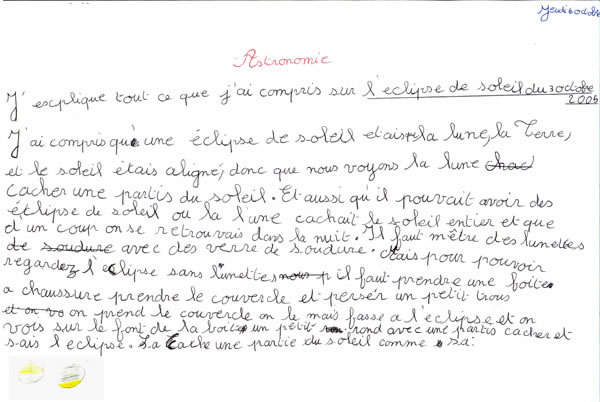 Jeudi 6 octobre
Astronomie
J'explique tout ce que j'ai compris sur l'eclipse de soleil du 3 octobre
2005
J'ai compris qu'une éclipse de soleil etais la lune, la Terre,
et le soleil étais aligné, donc que nous voyons la lune
cacher une partis du soleil. Et aussi qu'il pouvait avoir des
éclipse de soleil ou la l'une cachait le soleil entier et que
d'un coup on se retrouvais dans la nuit. Il faut mêtre des lunettes
de soudure avec des verre de soudure. Mais pour pouvoir
regardez l'eclipse sans lunettes nous p il faut prendre une foite
a chaussure prendre le couvercle et perser un petit trous
et on vo on prend le couvercle on le mais fasse a l'eclipse et on
vois sur le font de la boite un petit rond avec une partis cacher et
s'ais l'eclipse. Sa cache une partie du soleil comme sa: